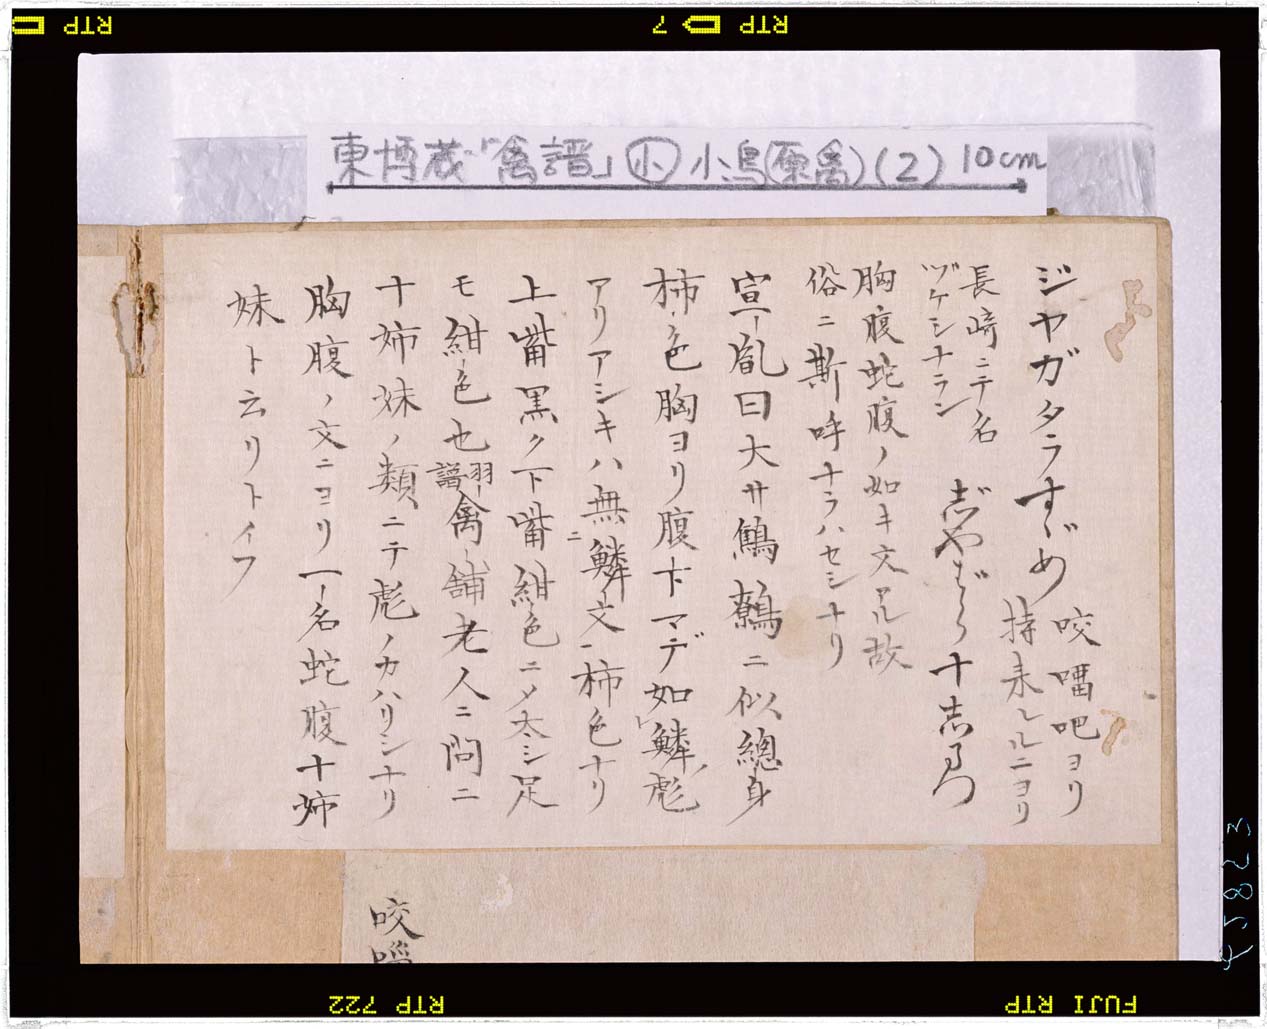 RTP 7 RTP
東博蔵「禽譜」㊥ 小鳥(原禽)(2) 10cm
ジヤガタラすゞめ 咬𠺕吧ヨリ
持来レルニヨリ
長崎ニテ名
ヅケシナラン
志゛やばら十志まつ
胸腹蛇腹ノ如キ文アル故
俗ニ斯呼ナラハセシナリ
宣胤曰大サ鷦鷯ニ似總身
柿色胸ヨリ腹下マデ如鱗彪
アリアシキハ無鱗文柿色ナリ
上嘴黒ク下嘴紺色ニメ太シ足
モ紺色也 羽譜 禽舗老人ニ問ニ
十姉妹ノ類ニテ彪ノカハリシナリ
胸腹ノ文ニヨリ一名蛇腹十姉
妹ト云リトイフ
咬
RTP 722 RTP
FUJI RTP